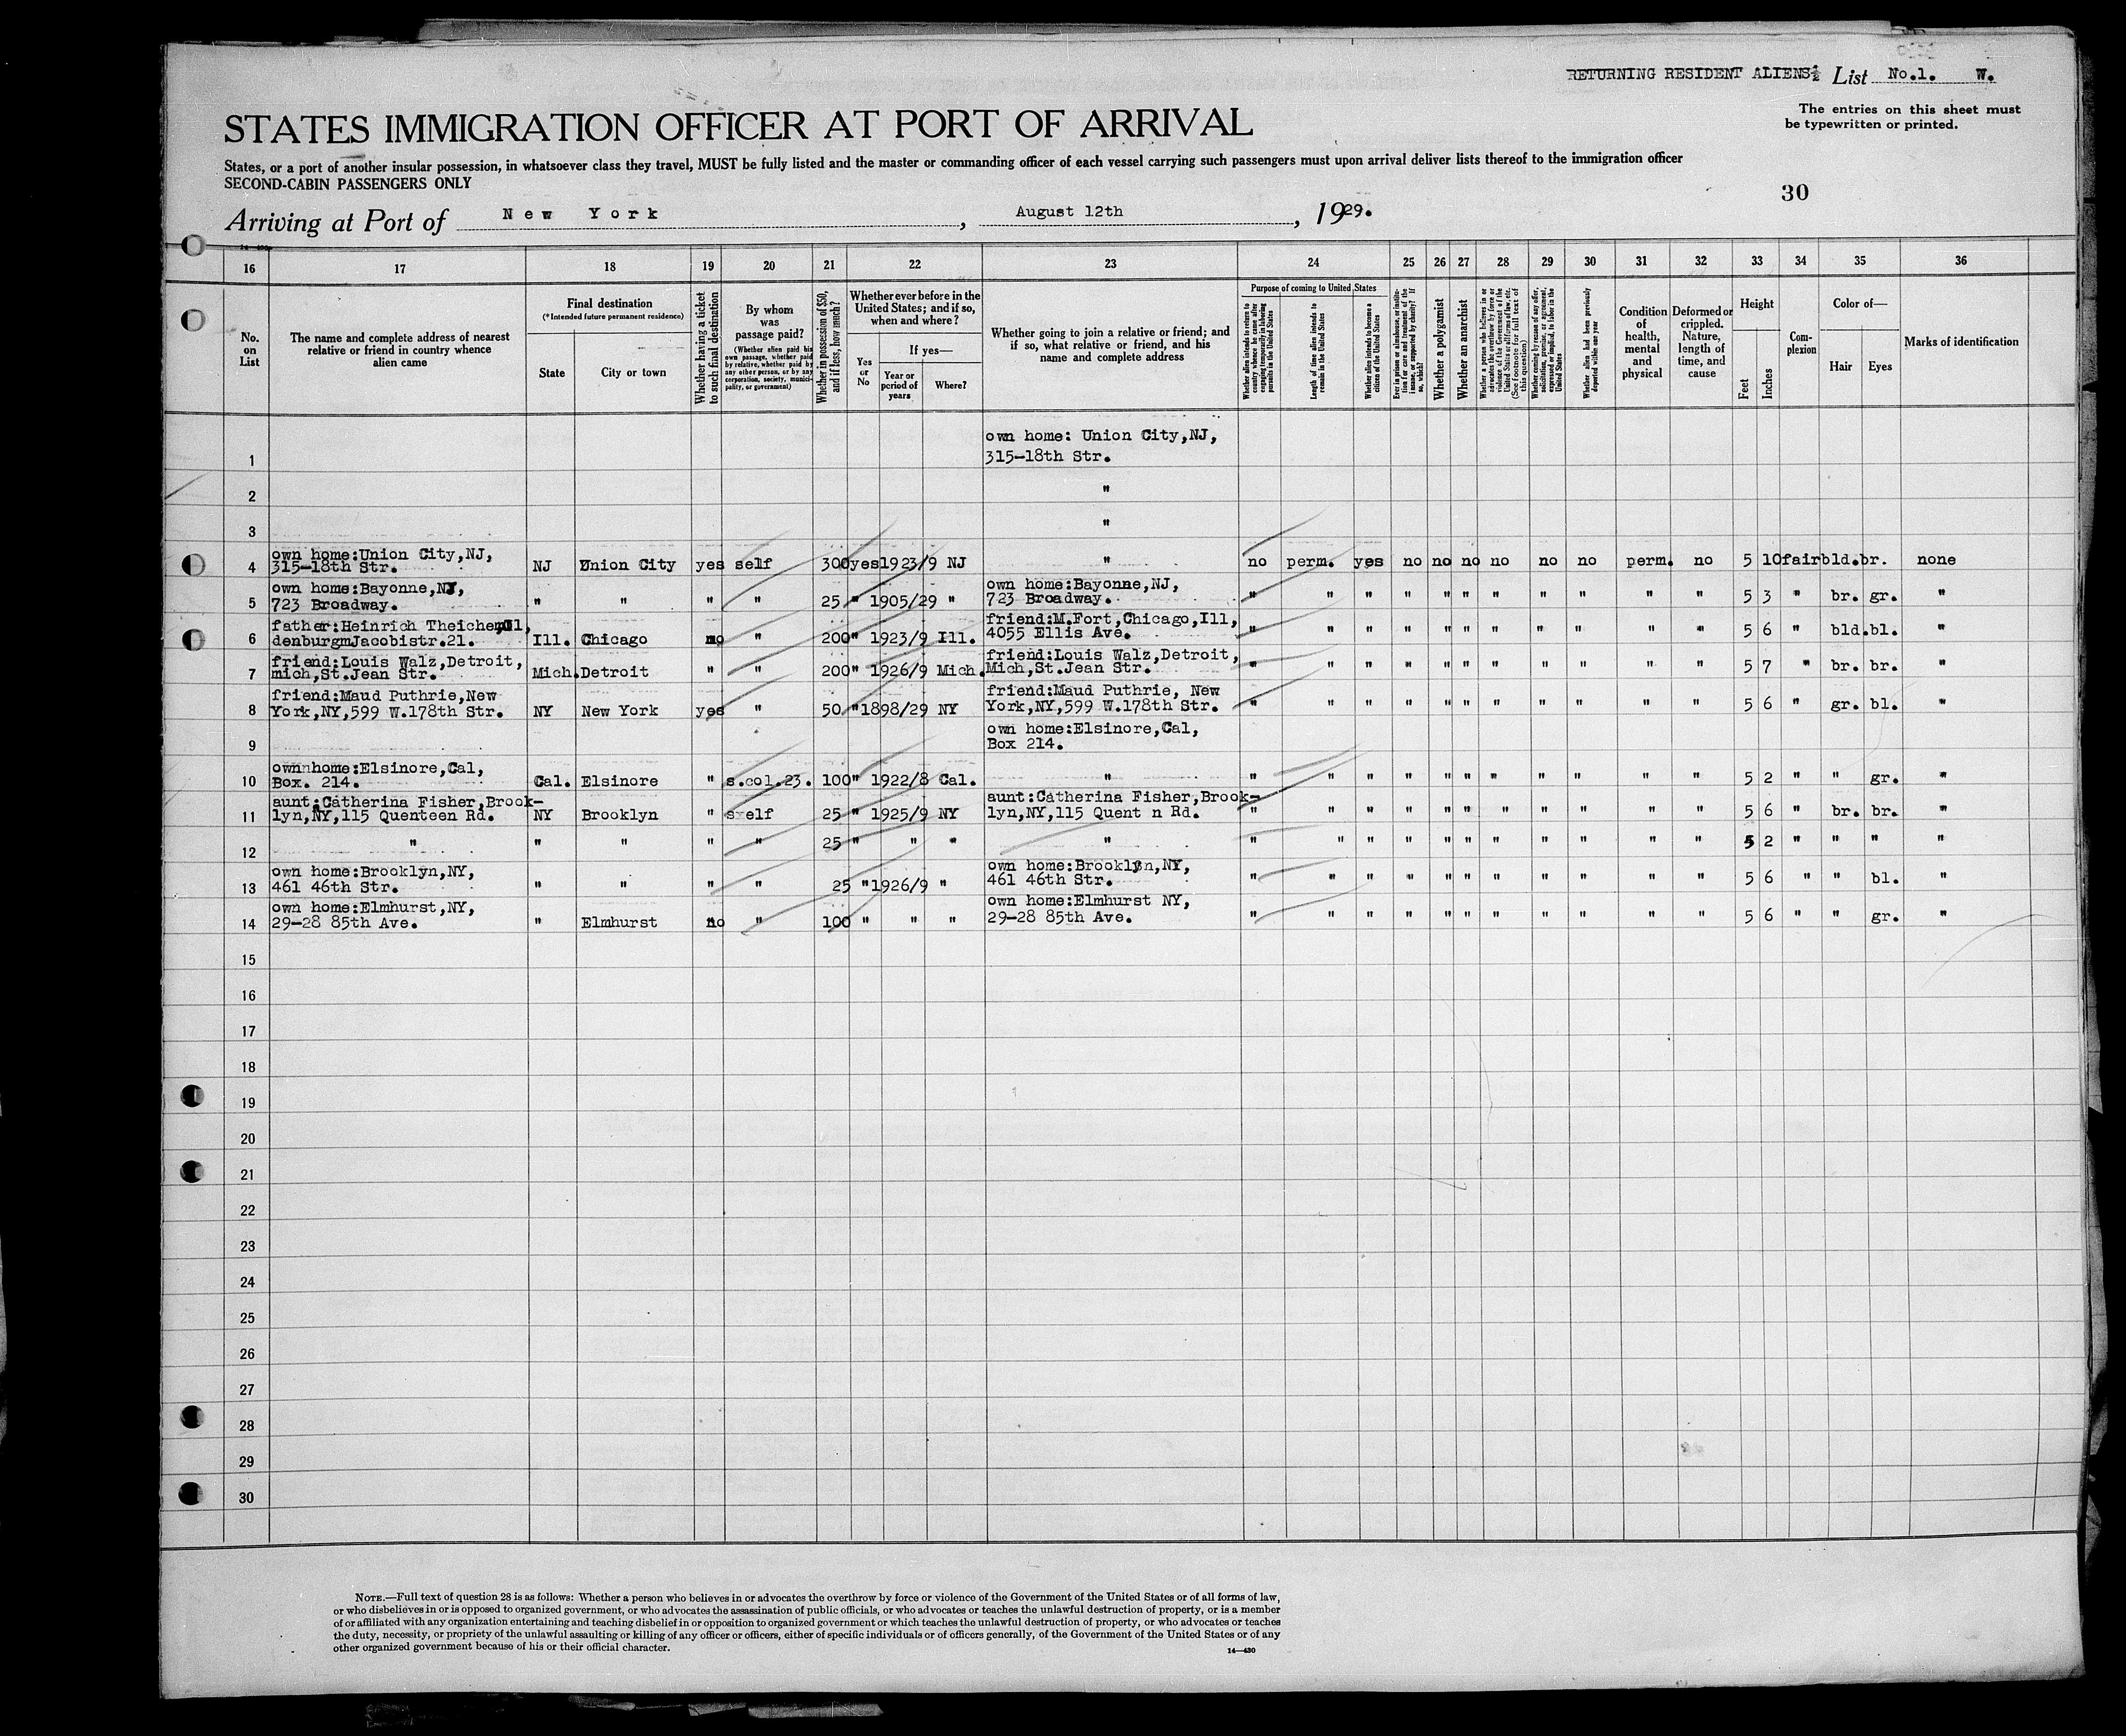 RETURNING RESIDENT ALIENS List No.1. W.
The entries on this sheet must
be typewritten or printed.
STATES IMMIGRATION OFFICER AT PORT OF ARRIVAL
States, or a port of another insular possession, in whatsoever class they travel, MUST be fully listed and the master or commanding officer of each vessel carrying such passengers must upon arrival deliver lists thereof to the immigration officer
SECOND-CABIN PASSENGERS ONLY
30
Arriving at Port of New York, August 12th, 1929.
16 17 18 19 20 21 22 23 24 25 26 27 28 29 30 31 32 33 34 35 36
No. on List
The name and complete address of nearest relative or friend in country whence alien came
Final destination
(* Intended future permanent residence)
State
City or town
Whether having a ticket to such final destination
By whom was passage paid?
(Whether alien paid his own passage, whether paid by relative, whether paid by any other person, or by any corporation, society, municipality, or government)
Whether in possession of $50, and if less, how much?
Whether ever before in the United States; and if so, when and where?
Yes or No
If yes—
Year or period of years
Where?
Whether going to join a relative or friend; and if so, what relative or friend, and his name and complete address
Purpose of coming to United States
Whether alien intends to return to country whence he came after engaging temporarily in laboring pursuits in the United States
Length of time alien intends to remain in the United States
Whether alien intends to become a citizen of the United States
Ever in prison or almshouse, or institution for care and treatment of the insane, or supported by charity? If so, which?
Whether a polygamist
Whether an anarchist
Whether a person who believes in or advocates the overthrow by force or violence of the Government of the United States or all forms of law, etc. (See footnote for full text of this question)
Whether coming by reason of any offer, solicitation, promise, or agreement, expressed or implied, to labor in the United States
Whether alien had been previously deported within one year
Condition of health, mental and physical
Deformed or crippled. Nature, length of time, and cause
Height
Feet
Inches
Complexion
Color of—
Hair
Eyes
Marks of identification
1 own home: Union City,NJ,
315-18th Str.
2 "
3 "
own home:Union City,NJ,
4 315-18th Str. NJ Union City yes self 300 yes 1923/9 NJ " no perm. yes no no no no no no perm. no 5 10 fair bld. br. none
own home:Bayonne,NJ, own home:Bayonne,NJ,
5 723 Broadway. " " " " 25 " 1905/29 " 723 Broadway. " " " " " " " " " " " 5 3 " br. gr. "
father:Heinrich friend:M.Fort,Chicago,Ill,
6 denburgmJacobistr.21. Ill. Chicago no " 200 " 1923/9 Ill. 4055 Ellis Ave. " " " " " " " " " " " 5 6 " bld. bl. "
friend:Louis Walz,Detroit, friend:Louis Walz,Detroit,
7 mich,St.Jean Str. Mich. Detroit " " 200 " 1926/9 Mich. Mich,St.Jean Str. " " " " " " " " " " " 5 7 " br. br. "
friend:Maud Puthrie,New friend:Maud Puthrie, New
8 York,NY,599 W.178th Str. NY New York yes " 50 " 1898/29 NY York,NY,599 W.178th Str. " " " " " " " " " " " 5 6 " gr. bl. "
own home:Elsinore,Cal,
9 Box 214.
own home:Elsinore,Cal,
10 Box. 214. Cal. Elsinore " s.col.23. 100 " 1922/8 Cal. " " " " " " " " " " " " 5 2 " " gr. "
aunt:Catherina Fisher,Brook- aunt:Catherina Fisher,Brook-
11 lyn,NY,115 Quenteen Rd. NY Brooklyn " self 25 " 1925/9 NY lyn,NY,115 Quent n Rd. " " " " " " " " " " " 5 6 " br. br. "
12 " " " " " 25 " " " " " " " " " " " " " " " 5 2 " " " "
own home:Brooklyn,NY, own home:Brooklyn,NY,
13 461 46th Str. " " " " 25 " 1926/9 " 461 46th Str. " " " " " " " " " " " 5 6 " " bl. "
own home:Elmhurst,NY, own home:Elmhurst NY,
14 29-28 85th Ave. " Elmhurst no " 100 " " " 29-28 85th Ave. " " " " " " " " " " " 5 6 " " gr. "
15
16
17
18
19
20
21
22
23
24
25
26
27
28
29
30
NOTE.—Full text of question 28 is as follows: Whether a person who believes in or advocates the overthrow by force or violence of the Government of the United States or of all forms of law,
or who disbelieves in or is opposed to organized government, or who advocates the assassination of public officials, or who advocates or teaches the unlawful destruction of property, or is a member
of or affiliated with any organization entertaining and teaching disbelief in or opposition to organized government or which teaches the unlawful destruction of property, or who advocates or teaches
the duty, necessity, or propriety of the unlawful assaulting or killing of any officer or officers, either of specific individuals or of officers generally, of the Government of the United States or of any
other organized government because of his or their official character.
14—430